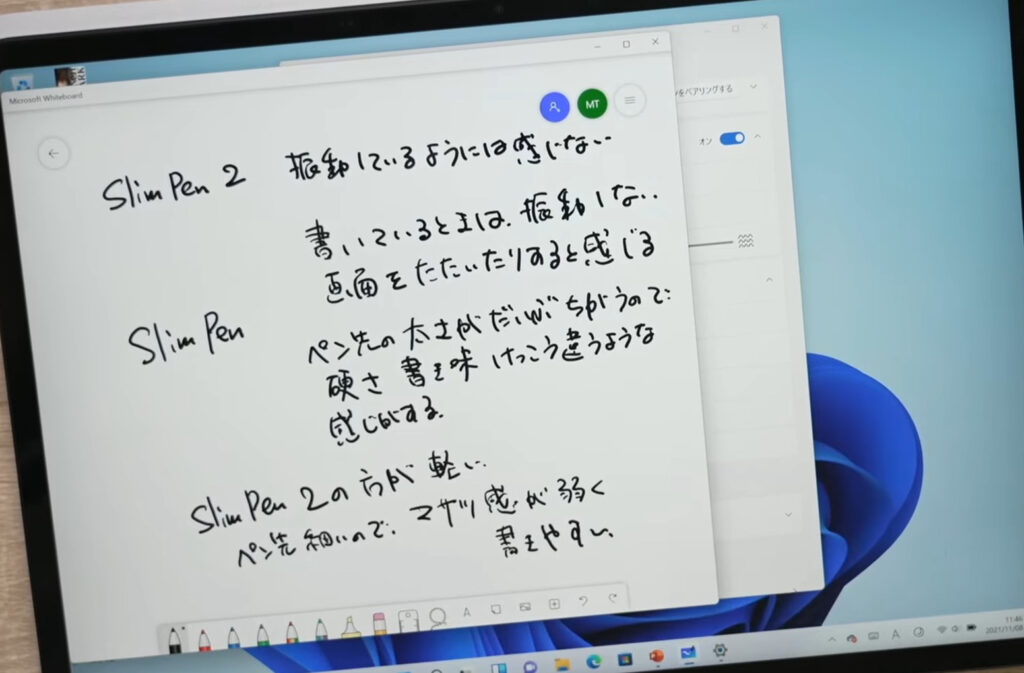 Microsoft Whiteboard
MT
をペアリングする
オン
Slim Pen 2 振動しているようには感じない
書いているときは、振動しない
画面をたたいたりすると感じる
Slim Pen ペン先の太さがだいぶちがうので
硬さ 書き味 けっこう違うような
感じがする。
Slim Pen 2の方が軽い
ペン先細いので、マサツ感が弱く
書きやすい
A
A
11:46
2021/11/08